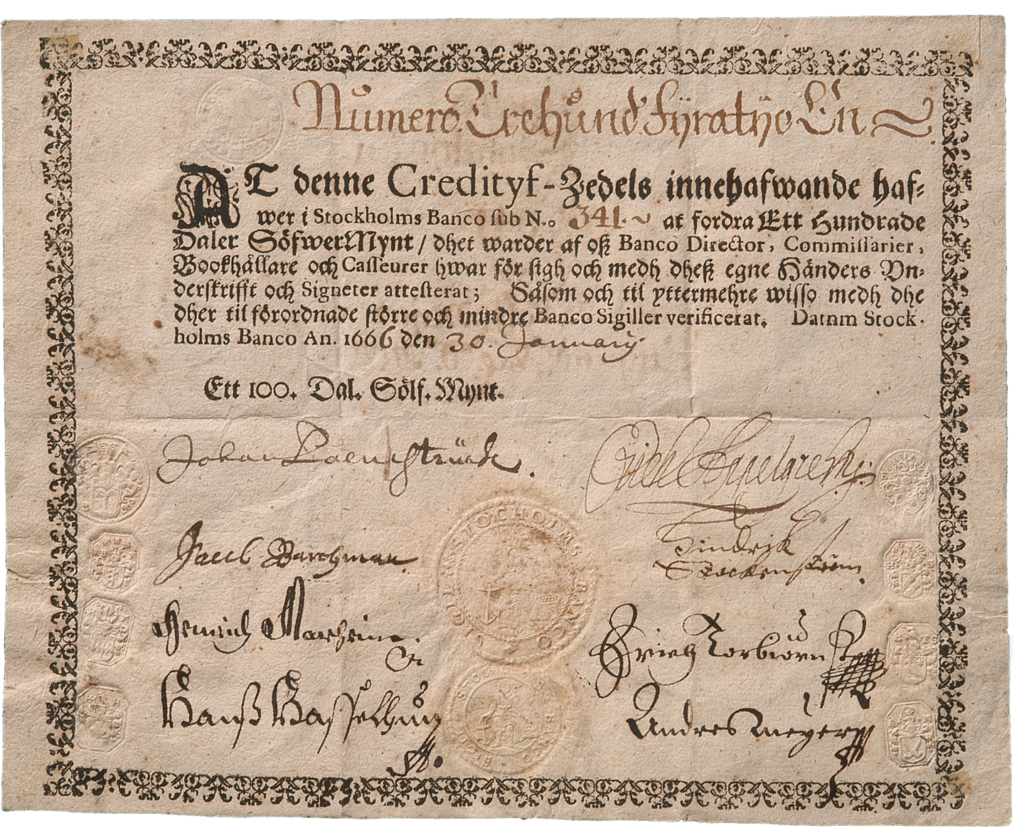 Numero Trehund Fÿratÿo En
AT denne Credityf-Zedels innehafwande haf-
wer i Stockholms Banco sub N.o 341. at fordra Ett Hundrade
Daler SöfwerMynt / dhet warder af oß Banco Director, Commissarier,
Bookhållare och Casseurer hwar för sigh och medh dheß egne Händers Vn-
derskrifft och Signeter attesterat; Såsom och til yttermehre wisso medh dhe
dher til förordnade större och mindre Banco Sigiller verificerat. Datnm Stock-
holms Banco An. 1666 den 30. January
Ett 100. Dal. Sölf. Mynt.
Johan
Jacob Barchman
Hindrik
HOLMS BANCO
Heinrich
Erich Torbiörn
Hanß Hasselhun
Andres meyer